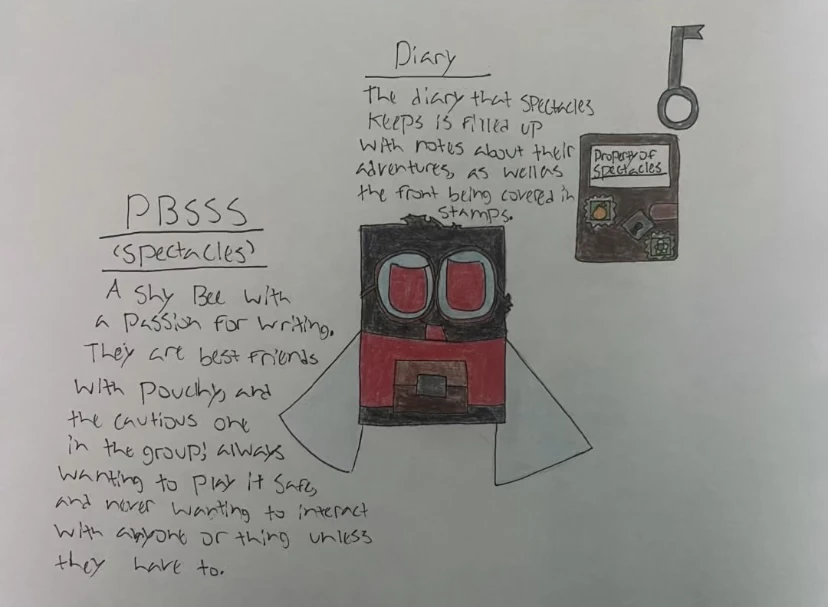 Diary
The diary that Spectacles
keeps is filled up
with notes about their
adventures, as well as
the front being covered in
stamps.
Property of
Spectacles
PBSSS
(Spectacles)
A Shy Bee with
a passion for writing.
They are best friends
with Pouchy, and
the cautious one
in the group; always
wanting to play it safe,
and never wanting to interact
with anyone or thing unless
they have to.